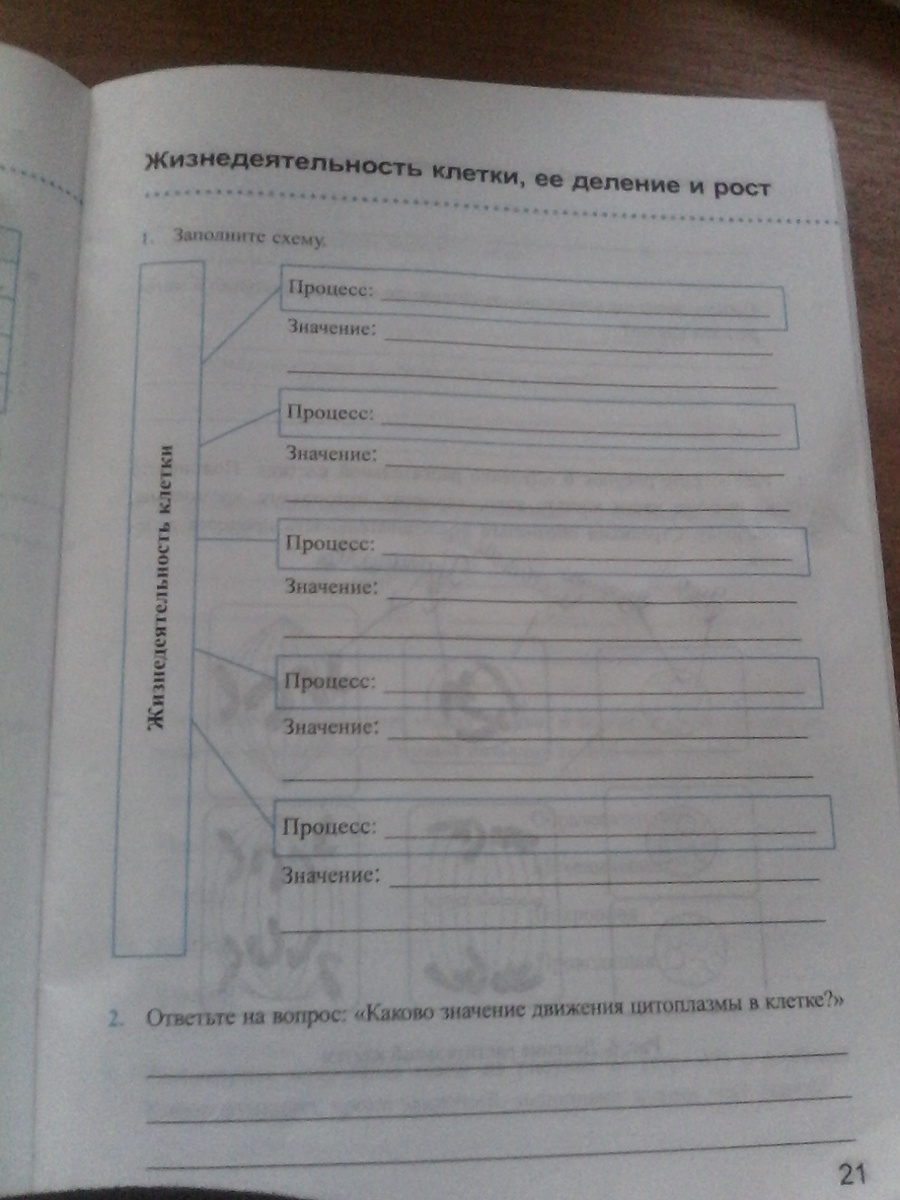 Жизнедеятельность клетки, ее деление и рост
1. Заполните схему.
Жизнедеятельность клетки
Процесс:
Значение:
Процесс:
Значение:
Процесс:
Значение:
Процесс:
Значение:
Процесс:
Значение:
2. Ответьте на вопрос: «Каково значение движения цитоплазмы в клетке?»
21